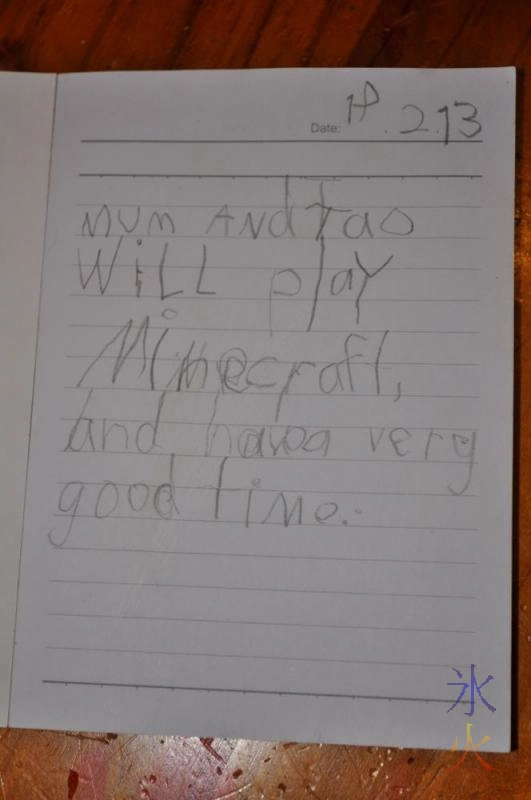 Date: 18.2.13
MUM ANd Tao
WiLL play
Minecraft,
and hava very
good time.
氷
火